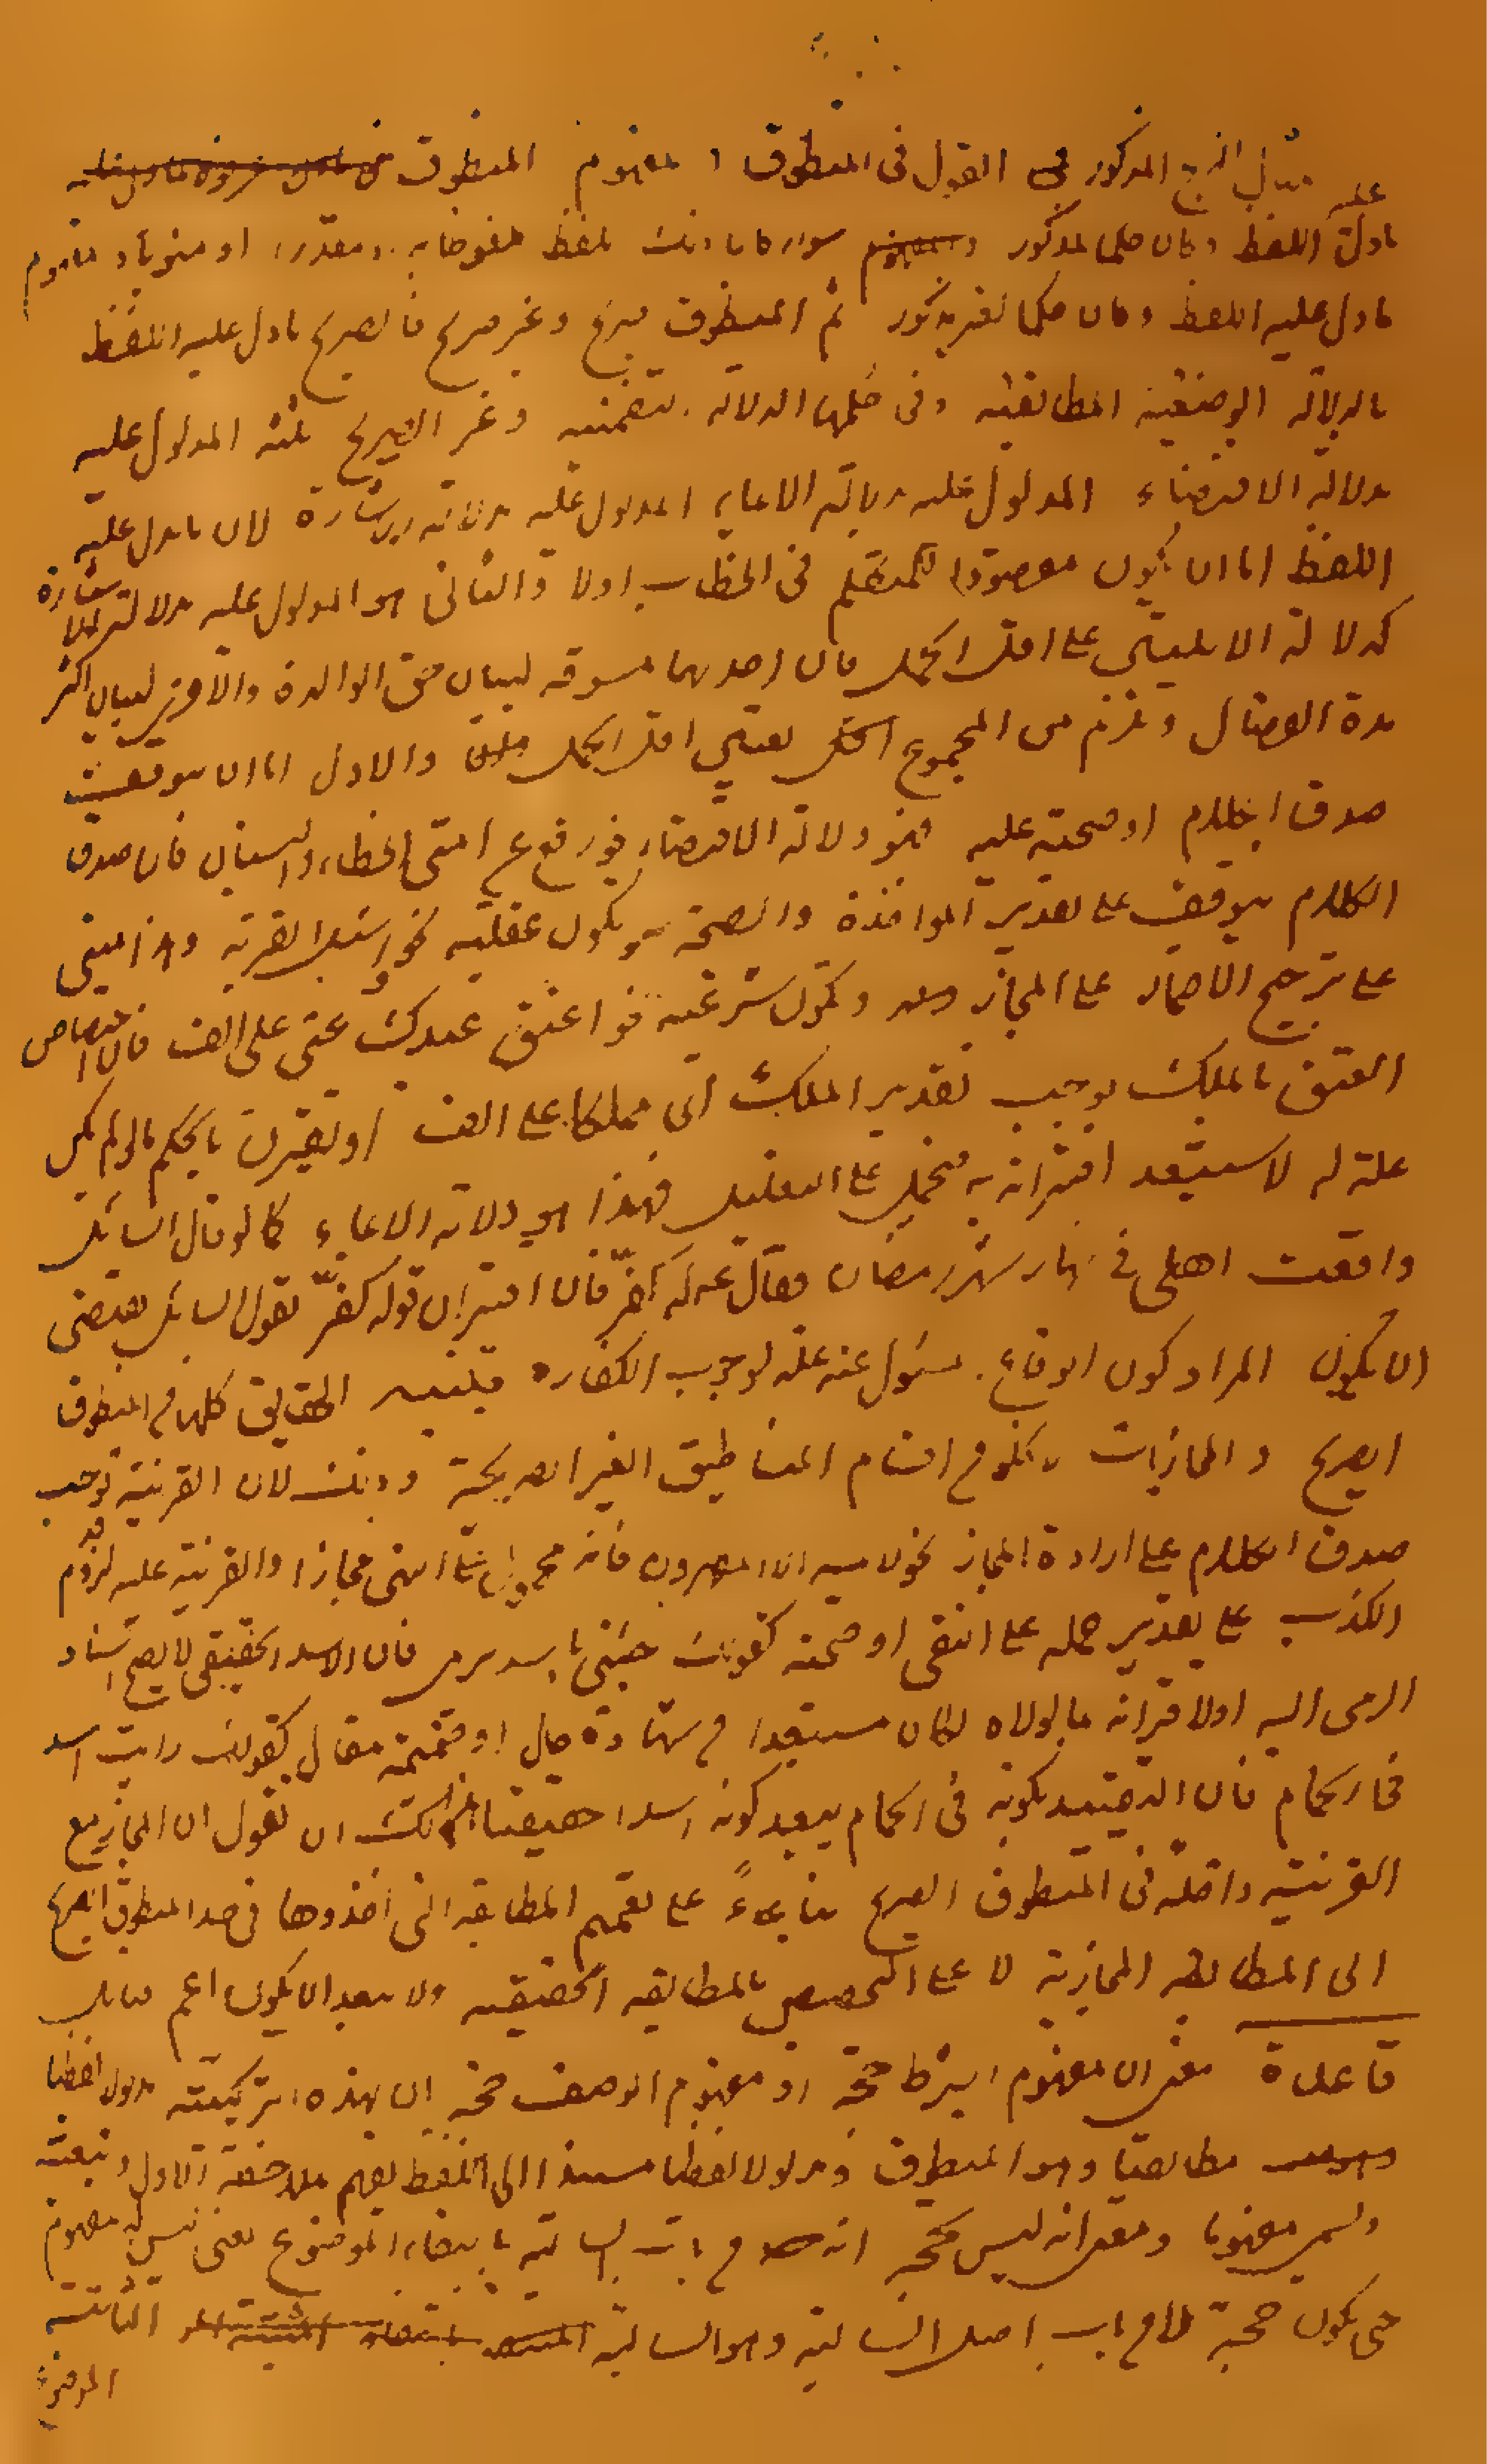 المذكور في القول في المنطوق و المفهوم المنطوق
عليه
مادل اللفظ وكان حكما لمذكور سواء كان ذلك بلفظ ملفوظا به او مقدرا او منويا و مفهوم
مادل عليه اللفظ وكان حكما لغير مذكور ثم المنطوق صريح وغير صريح فالصريح مادل عليه اللفظ
بالدلالة الوضعية المطابقية وفي حكمها الدلالة التضمنية وغير الصريح ثلثة المدلول عليه
بدلالة الاقتضاء المدلول عليه بدلالة الايماء المدلول عليه بدلالة الاشارة لان مادل عليه
اللفظ اما ان يكون مقصودا للمتكلم في الخطاب اولا والثاني هو المدلول عليه بدلالة الاشارة
كدلالة الايتين على اقل الحمل فان احدهما مسوقه لبيان حق الوالدة والاخرى لبيان اكثر
مدة الفصال ويلزم من المجموع اقل الحمل والاول اما ان يتوقف
صدق الكلام او صحته عليه فهو دلالة الاقتضاء نحو رفع عن امتى الخطاء والنسيان فان صدق
الكلام يتوقف على تقدير المواخذة والصحة يكون عقلية نحو واسئل القرية وهذا مبنى
على ترجيح الاضمار على المجاز ويكون شرعية نحو اعتق عبدك عنى على الف فان اختصاص
العتق بالملك يوجب تقدير الملك اى مملكا على الف او يقترن بالحكم ما لو لم يكن
علة له لاستبعد اقترانه به فيحمل على التعليل فهذا هو دلالة الايماء كما لو قال السائل
واقعت اهلى في نهار شهر رمضان فقال له كفّر فان اقتران قوله كفّر بقول السائل يقتضى
ان يكون المراد كون الوقاع المسئول عنه علة لوجوب الكفارة تنبيه الحقايق كلها من المنطوق
الصريح و المجازات كلها من اقسام المناطيق الغير الصريحة وذلك لان القرينة توجب
صدق الكلام على ارادة المجاز نحو لا يمسه الا المطهرون فانه محمول على النهى مجازا والقرينة عليه لزوم
الكذب على تقدير حمله على النفى او صحته كقولك جئنى باسد يرمى فان الاسد الحقيقى لا يصح اسناد
الرمى اليه او لاقترانه بما لولاه لكان مستبعدا من شهادة حال او ضميمة مقال كقولك رايت اسد
في الحمام فان التقييد بكونه في الحمام يبعد كونه اسدا حقيقيا ولك ان تقول ان المجاز مع
القرينة داخلة في المنطوق الصريح بناءً على تعميم المطابقة التي اخذوها في حد المنطوق الصريح
الى المطابقة المجازية لا على التخصيص بالمطابقة الحقيقية ولا يبعد ان يكون اعم فتامل
قاعدة معنى ان مفهوم الشرط حجة او مفهوم الوصف حجة ان لهذه التركيبة مدلولا لفظيا
مطابقيا وهو المنطوق ومدلولا لفظيا مستندا الى اللفظ يفهم بملاحظة الاول وتبعيته
ويسمى مفهوما ومعنى انه ليس بحجة انه من باب السالبة بانتفاء الموضوع يعنى ليس له مفهوم
حتى يكون حجة لا من باب اصل السالبة وهو السالبة الثابتة
الموضوع